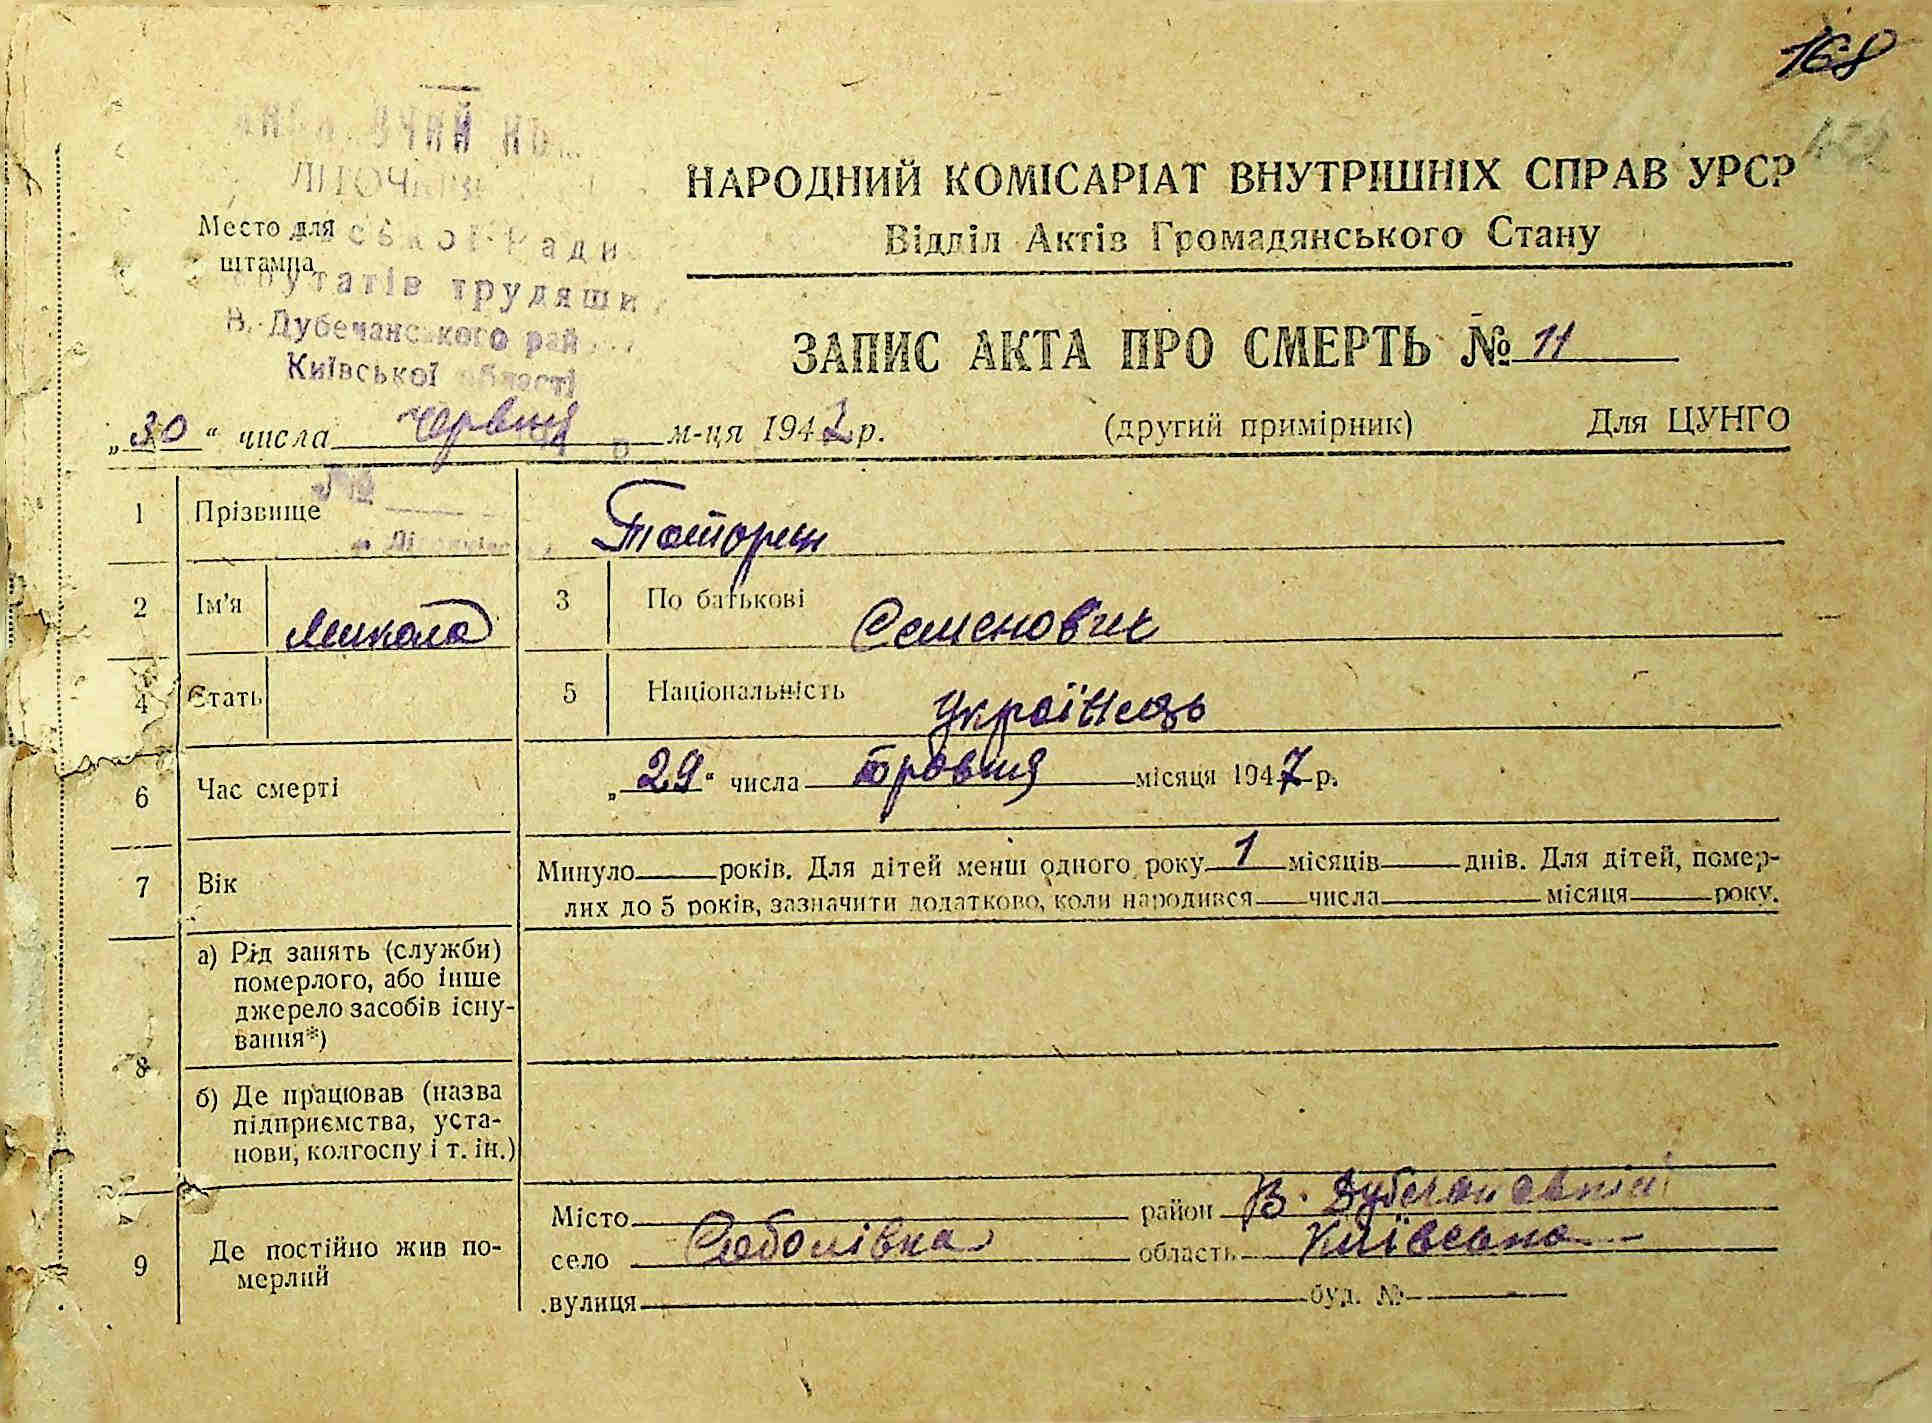 168
НАРОДНИЙ КОМІСАРІАТ ВНУТРІШНІХ СПРАВ УРСР
Відділ Актів Громадянського Стану
Место для
штампа
ської Ради
путатів трудящи
В. Дубечанського рай
Київської області
ЗАПИС АКТА ПРО СМЕРТЬ № 11
„30“ числа червня м-ця 1947 р. (другий примірник) Для ЦУНГО
№
1 Прізвище
2 Ім'я Микола 3 По батькові Семенович
4 Стать 5 Національність Українець
6 Час смерті „29“ числа травня місяця 1947 р.
7 Вік Минуло років. Для дітей менш одного року 1 місяців днів. Для дітей, помер-
лих до 5 років, зазначити додатково, коли народився числа місяця року.
8
а) Рід занять (служби)
померлого, або інше
джерело засобів існу-
вання*)
б) Де працював (назва
підприємства, уста-
нови, колгоспу і т. ін.)
9 Де постійно жив по-
мерлий
Місто район В. Дубечанський
село область Київська
вулиця буд. №